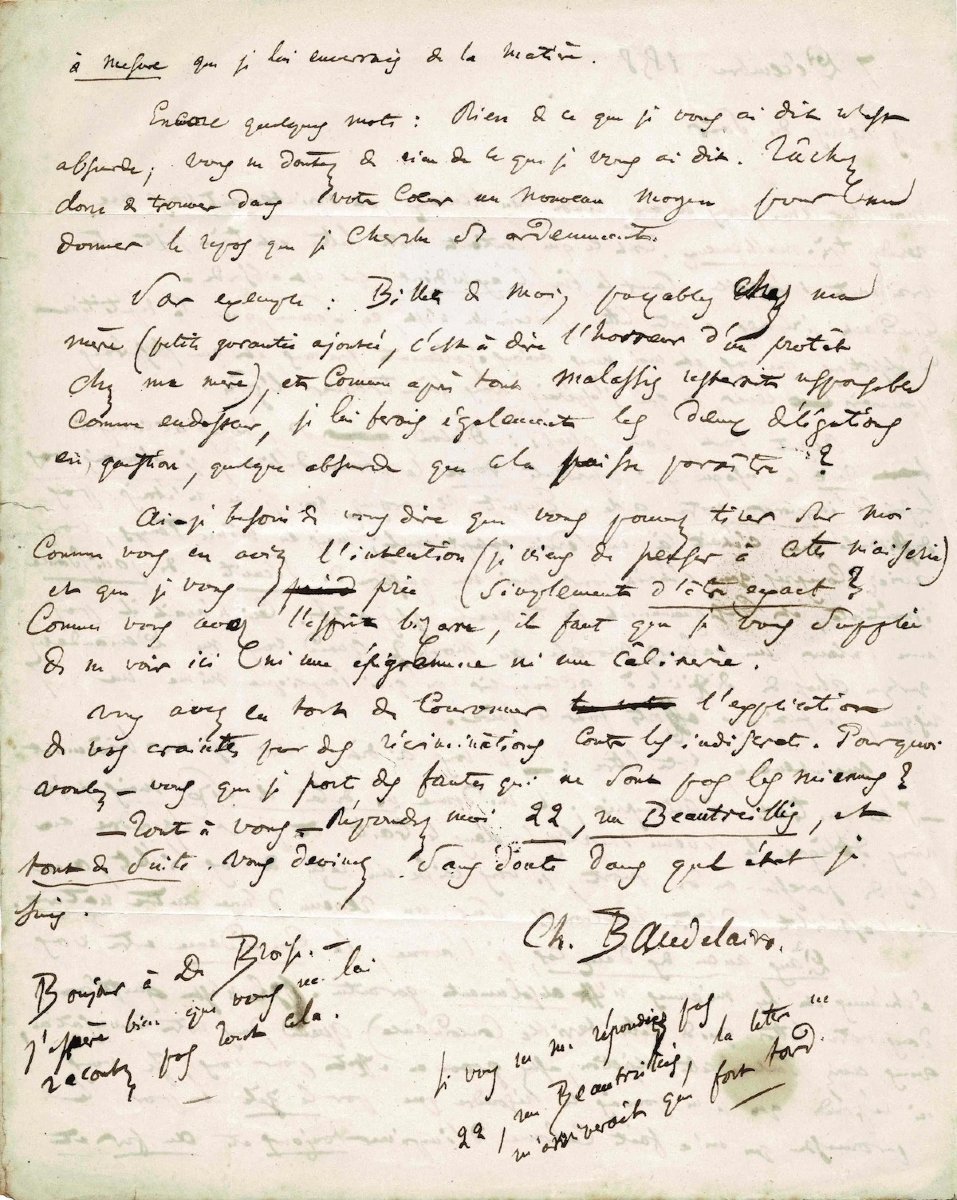 à mesure que je lui enverrais de la matière.
Encore quelques mots : Rien de ce que je vous ai dit n'est
absurde ; vous ne doutez de rien de ce que je vous ai dit. Tâchez
donc de trouver dans votre cœur un nouveau moyen pour me
donner le repos que je cherche si ardemment.
Par exemple : Billets de moi, payables chez ma
mère (petite garantie ajoutée, c'est à dire l'horreur d'un protêt
chez ma mère), et comme après tout Malassis resterait responsable
comme endosseur, je lui ferais également les deux délégations
en question, quelque absurde que cela puisse paraître ?
Ai-je besoin de vous dire que vous pouvez tirer sur moi
comme vous en aviez l'intention (je viens de penser à cette niaiserie)
et que je vous prie simplement d'être exact ?
Comme vous avez l'esprit bizarre, il faut que je vous supplie
de ne voir ici ni une épigramme ni une câlinerie.
Vous avez eu tort de couronner l'explication
de vos craintes par des récriminations contre les indiscrets. Pourquoi
voulez-vous que je porte des fautes qui ne sont pas les miennes ?
— Tout à vous — Répondez moi 22, rue Beautreillis, et
tout de suite. Vous devinez sans doute dans quel état je
suis.
Ch. Baudelaire.
Bonjour à De Broise. —
J'espère bien que vous ne lui
racontez pas tout cela.
Si vous ne me répondiez pas
22, rue Beautreillis, la lettre ne
m'arriverait que fort tard.